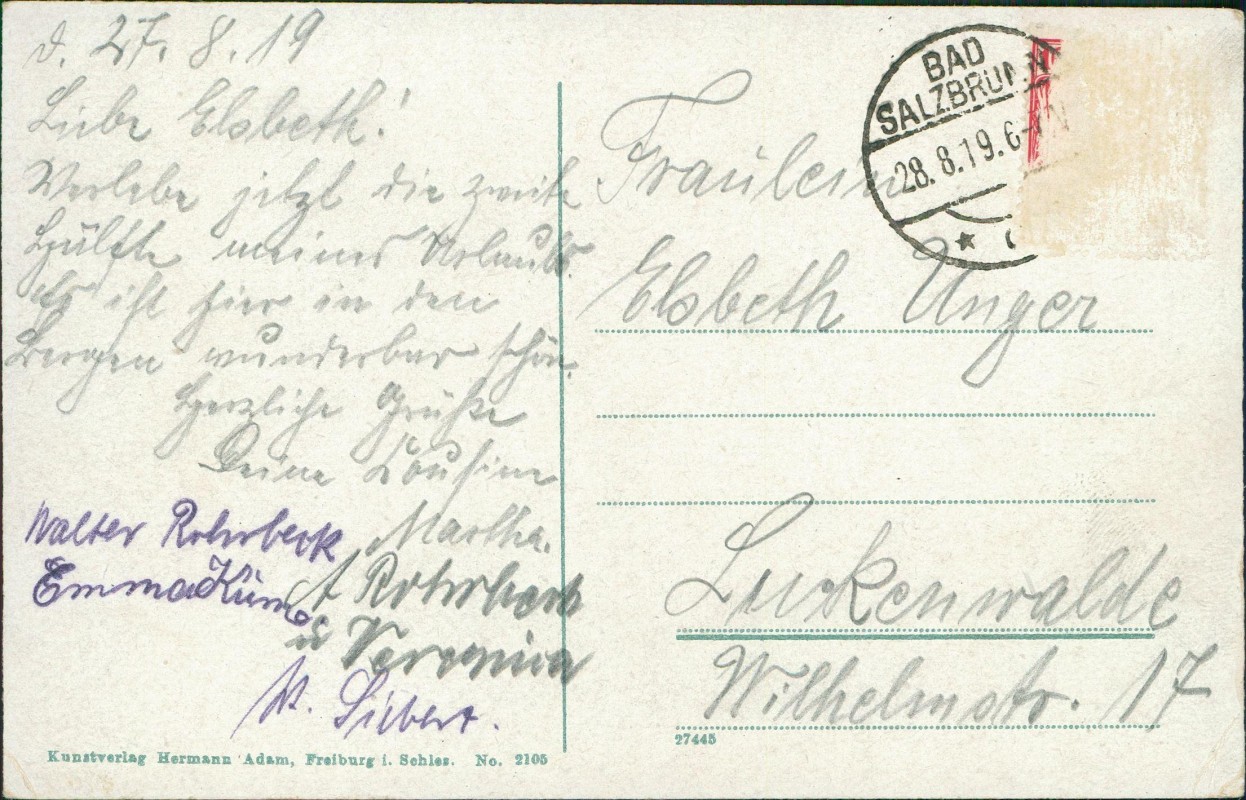 d. 27.8.19
Liebe Elsbeth!
Verlebe jetzt die zweite
Hälfte meines Urlaubs.
Es ist hier in den
Bergen wunderbar schön.
Herzliche Grüße
Deine Cousine
Martha.
Walter Rohrbeck
Emma
A Rohrbeck
u Veronica
W. Siebert.
Kunstverlag Hermann Adam, Freiburg i. Schles. No. 2105
BAD
SALZBRUNN
28.8.19.6-7N
Fräulein
Elsbeth Unger
Luckenwalde
Wilhelmstr. 17
27445